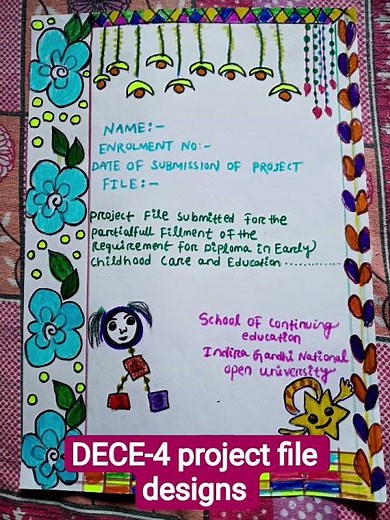 NAME:-
ENROLMENT NO:-
DATE OF SUBMISSION OF PROJECT
FILE:-
Project File Submitted For the
partialfull Fillment of the
Requirement for Diploma in Early
Childhood Care and Education ..............
School of Continuing
education
Indira Gandhi National
open university
DECE-4 project file
designs